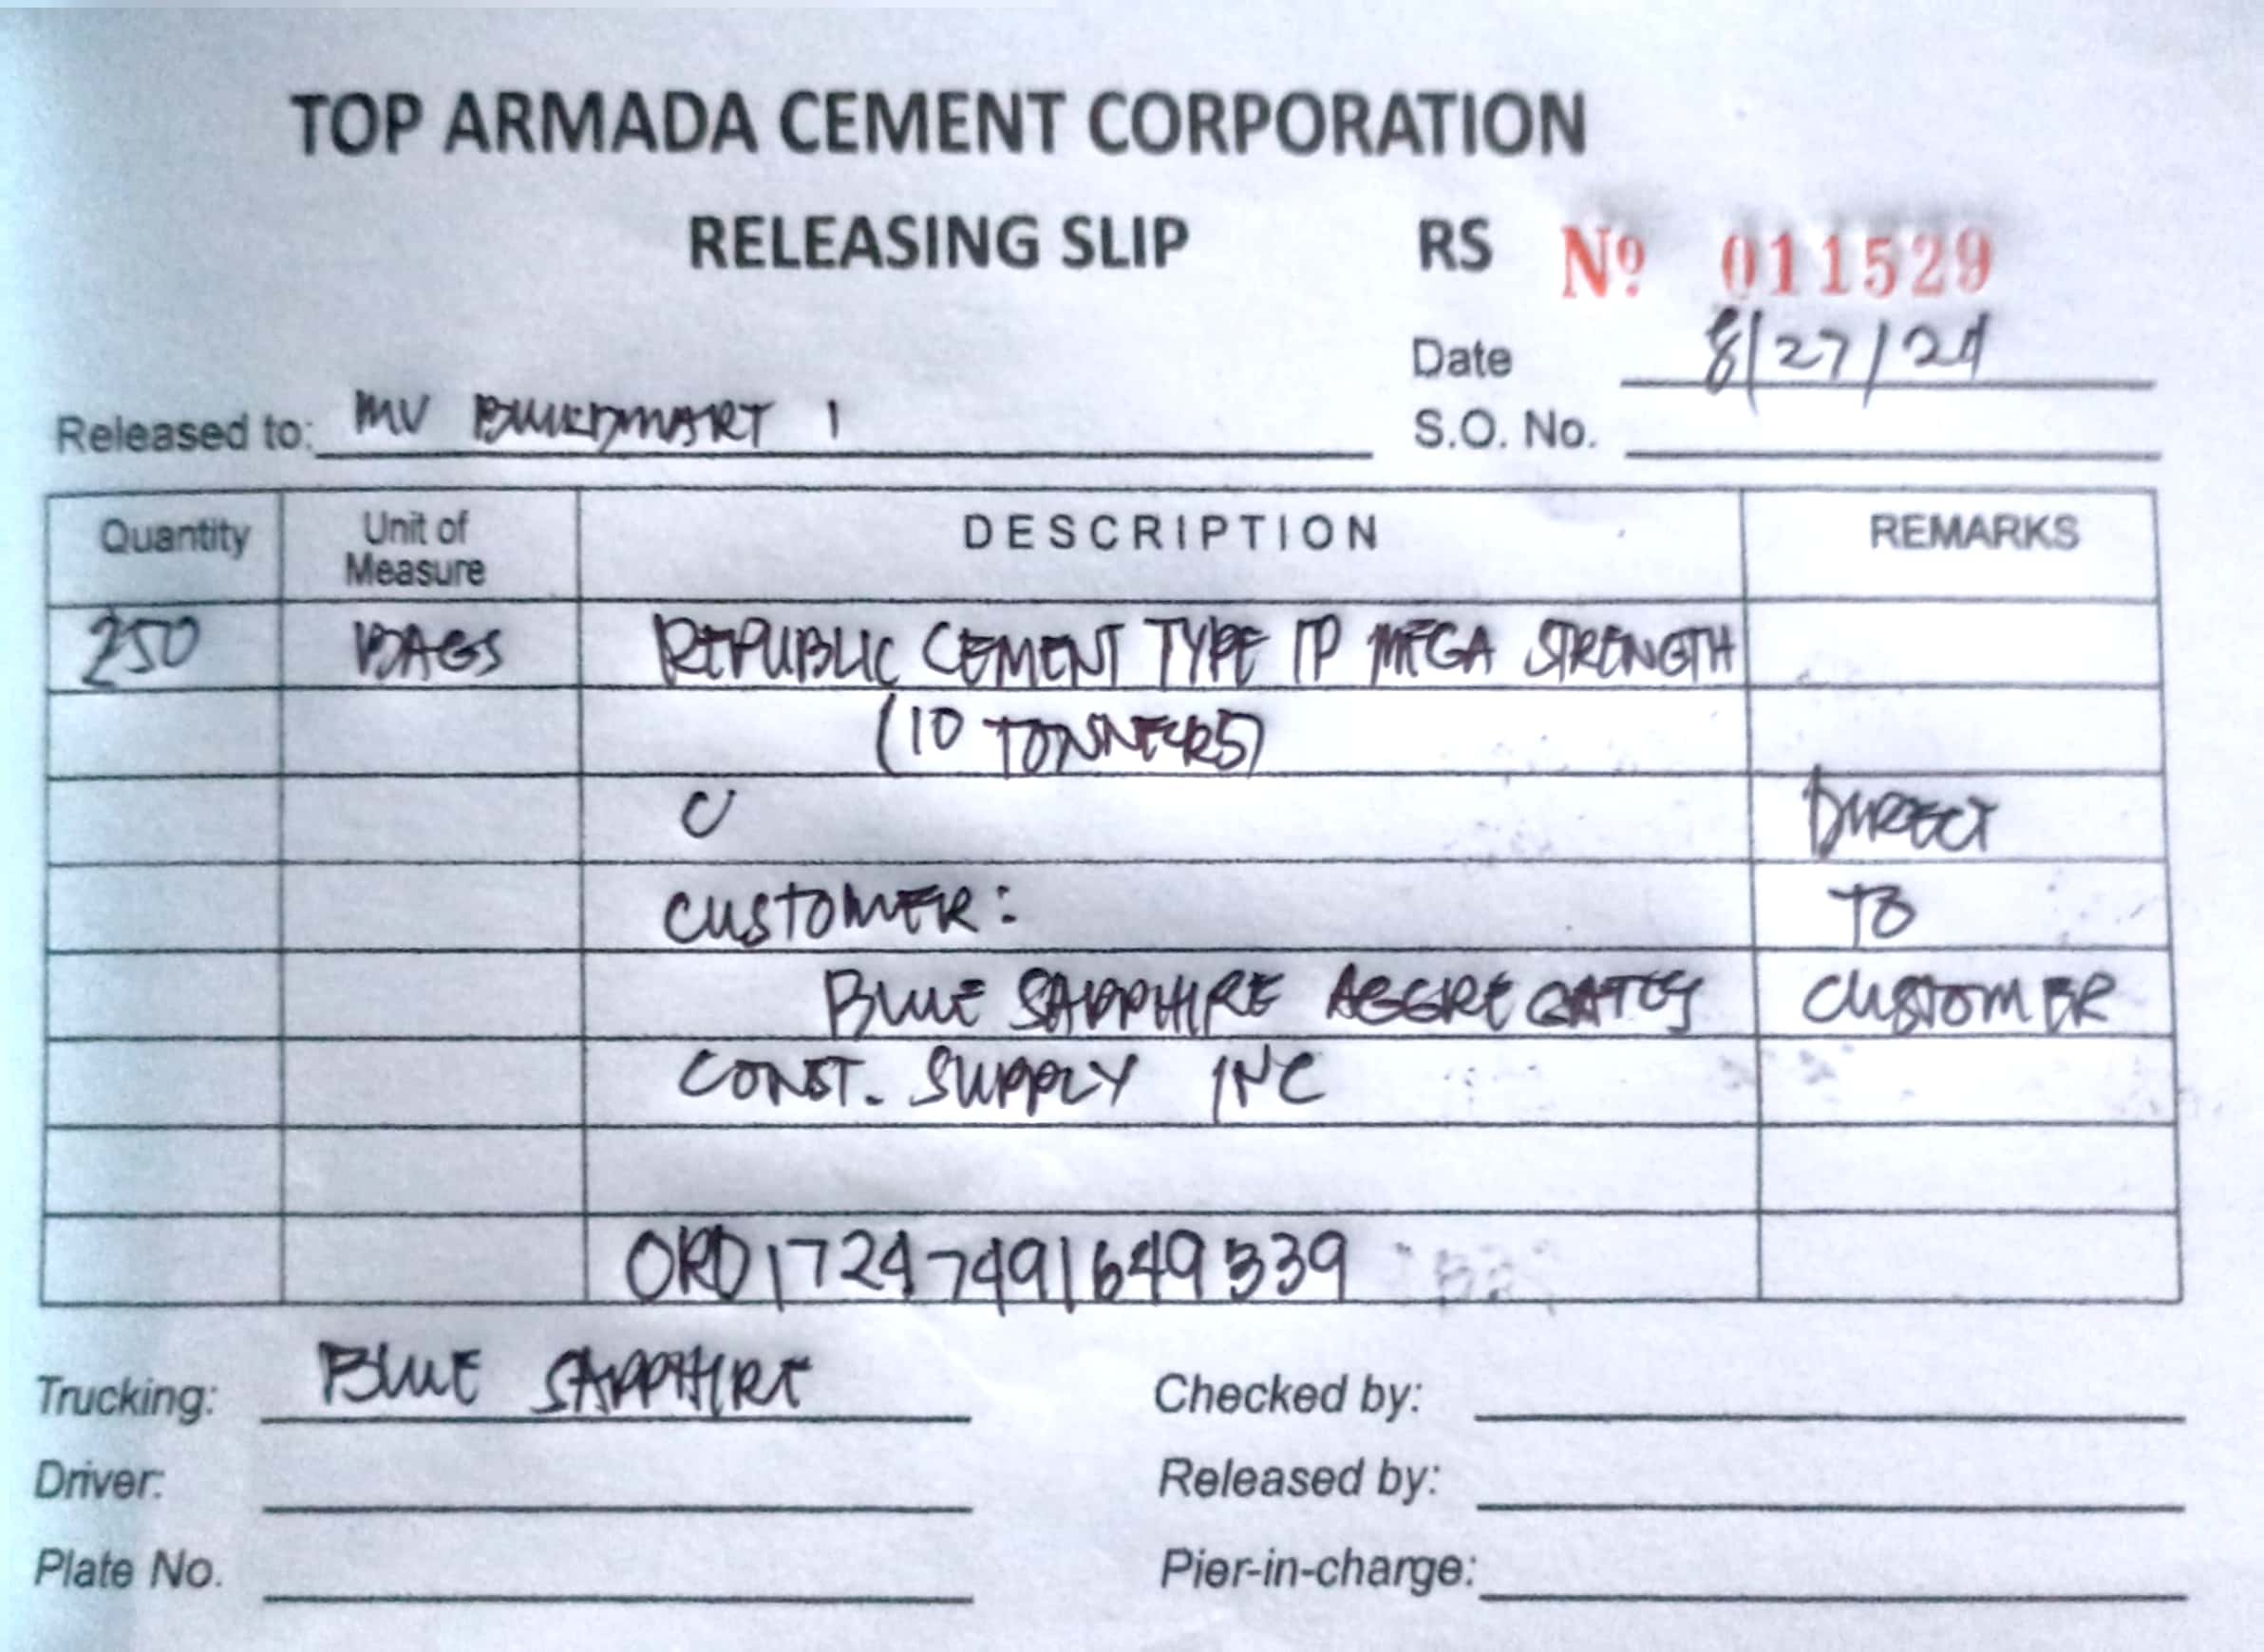 TOP ARMADA CEMENT CORPORATION
RELEASING SLIP RS Nº 011529
Date 8/27/24
Released to: MV BUILDMART 1 S.O. No.
Quantity Unit of Measure DESCRIPTION REMARKS
250 BAGS REPUBLIC CEMENT TYPE 1P MEGA STRENGTH
(10 TONNERS)
DIRECT
CUSTOMER: TO
BLUE SAPPHIRE AGGREGATES CUSTOMER
CONST. SUPPLY INC
ORD17247491649339
Trucking: BLUE SAPPHIRE Checked by:
Driver: Released by:
Plate No. Pier-in-charge: